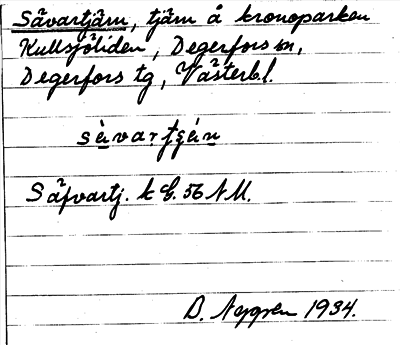 Sävartjärn, tjärn å kronoparken
Kullsjöliden, Degerfors sn,
Degerfors tg, Västerb.l.
sè̱var tʃä́n
Säfvartj. k G. 56 NM.
D. Nygren 1934.